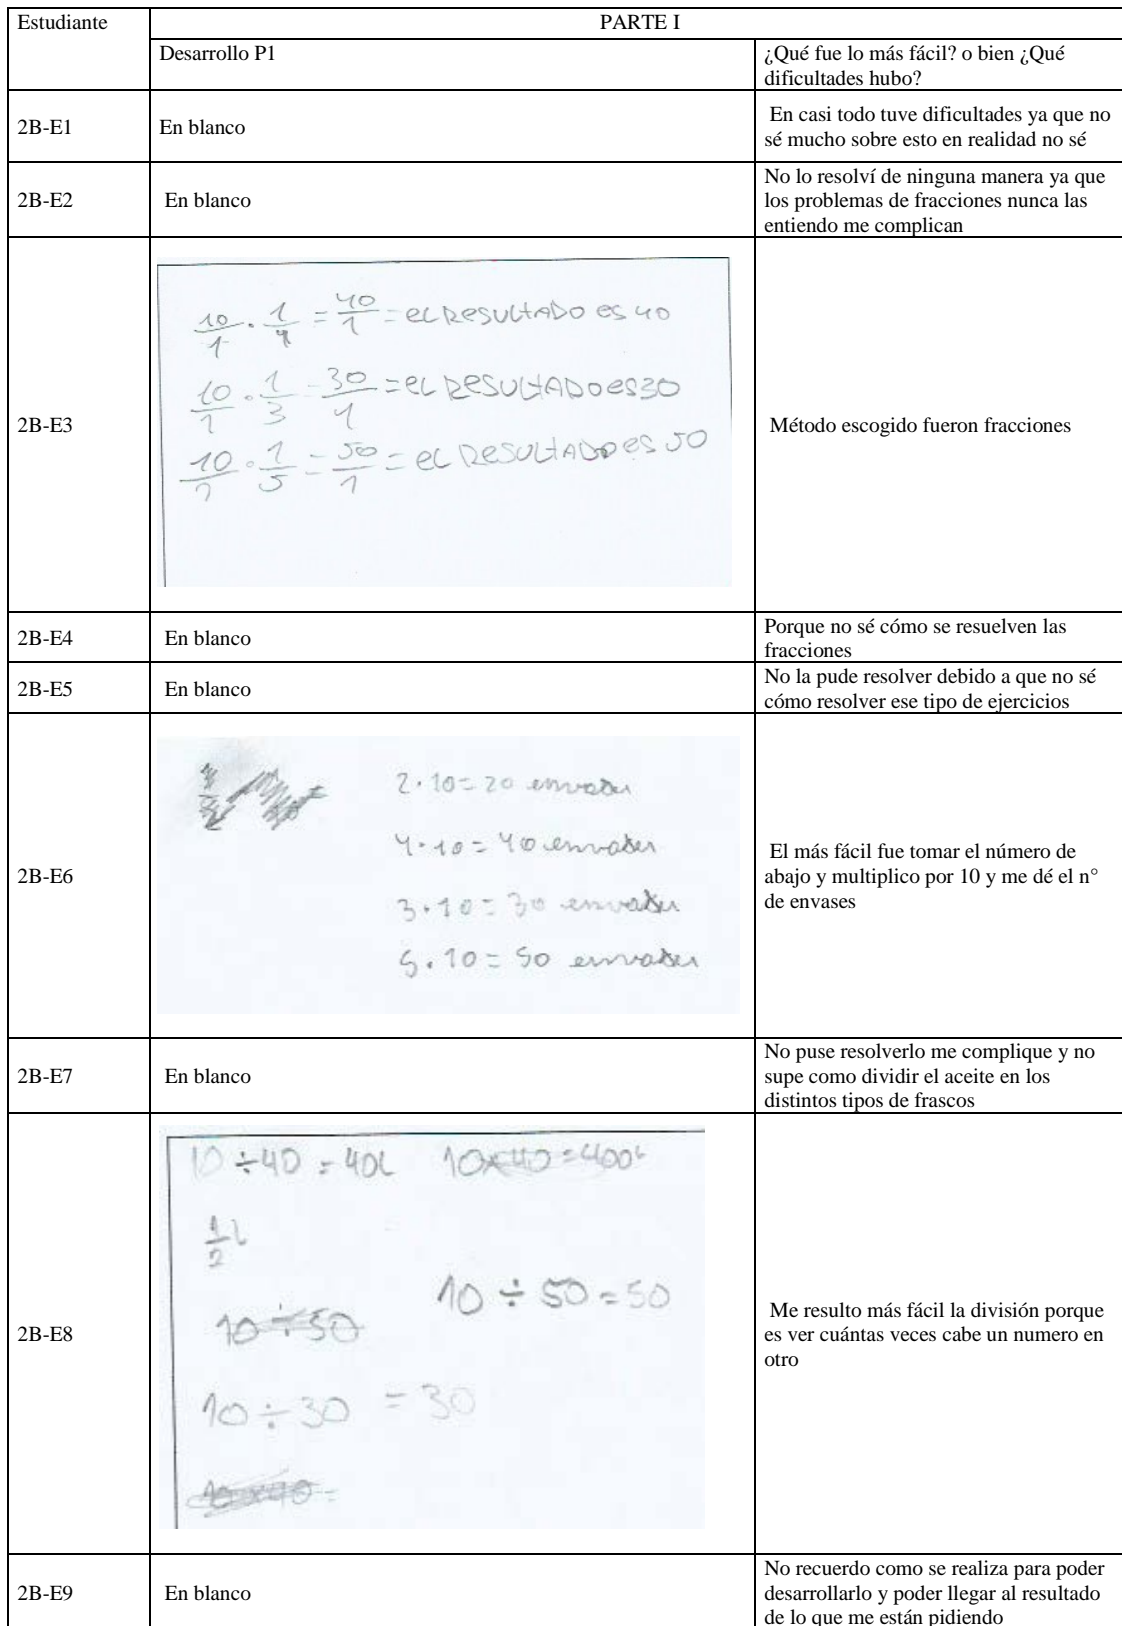 Estudiante
PARTE I
Desarrollo P1
¿Qué fue lo más fácil? o bien ¿Qué
dificultades hubo?
2B-E1
En blanco
En casi todo tuve dificultades ya que no
sé mucho sobre esto en realidad no sé
2B-E2
En blanco
No lo resolví de ninguna manera ya que
los problemas de fracciones nunca las
entiendo me complican
2B-E3
10/1 · 1/4 = 40/1 = el Resultado es 40
10/1 · 1/3 = 30/1 = el Resultado es 30
10/1 · 1/5 = 50/1 = el Resultado es 50
Método escogido fueron fracciones
2B-E4
En blanco
Porque no sé cómo se resuelven las
fracciones
2B-E5
En blanco
No la pude resolver debido a que no sé
cómo resolver ese tipo de ejercicios
2B-E6
2·10=20 envases
4·10=40 envases
3·10=30 envases
5·10=50 envases
El más fácil fue tomar el número de
abajo y multiplico por 10 y me dé el n°
de envases
2B-E7
En blanco
No puse resolverlo me complique y no
supe como dividir el aceite en los
distintos tipos de frascos
2B-E8
10÷40=40L 10x40=400L
1/2 L
10÷50=50
10÷50
10÷30 =30
10x40=
Me resulto más fácil la división porque
es ver cuántas veces cabe un numero en
otro
2B-E9
En blanco
No recuerdo como se realiza para poder
desarrollarlo y poder llegar al resultado
de lo que me están pidiendo